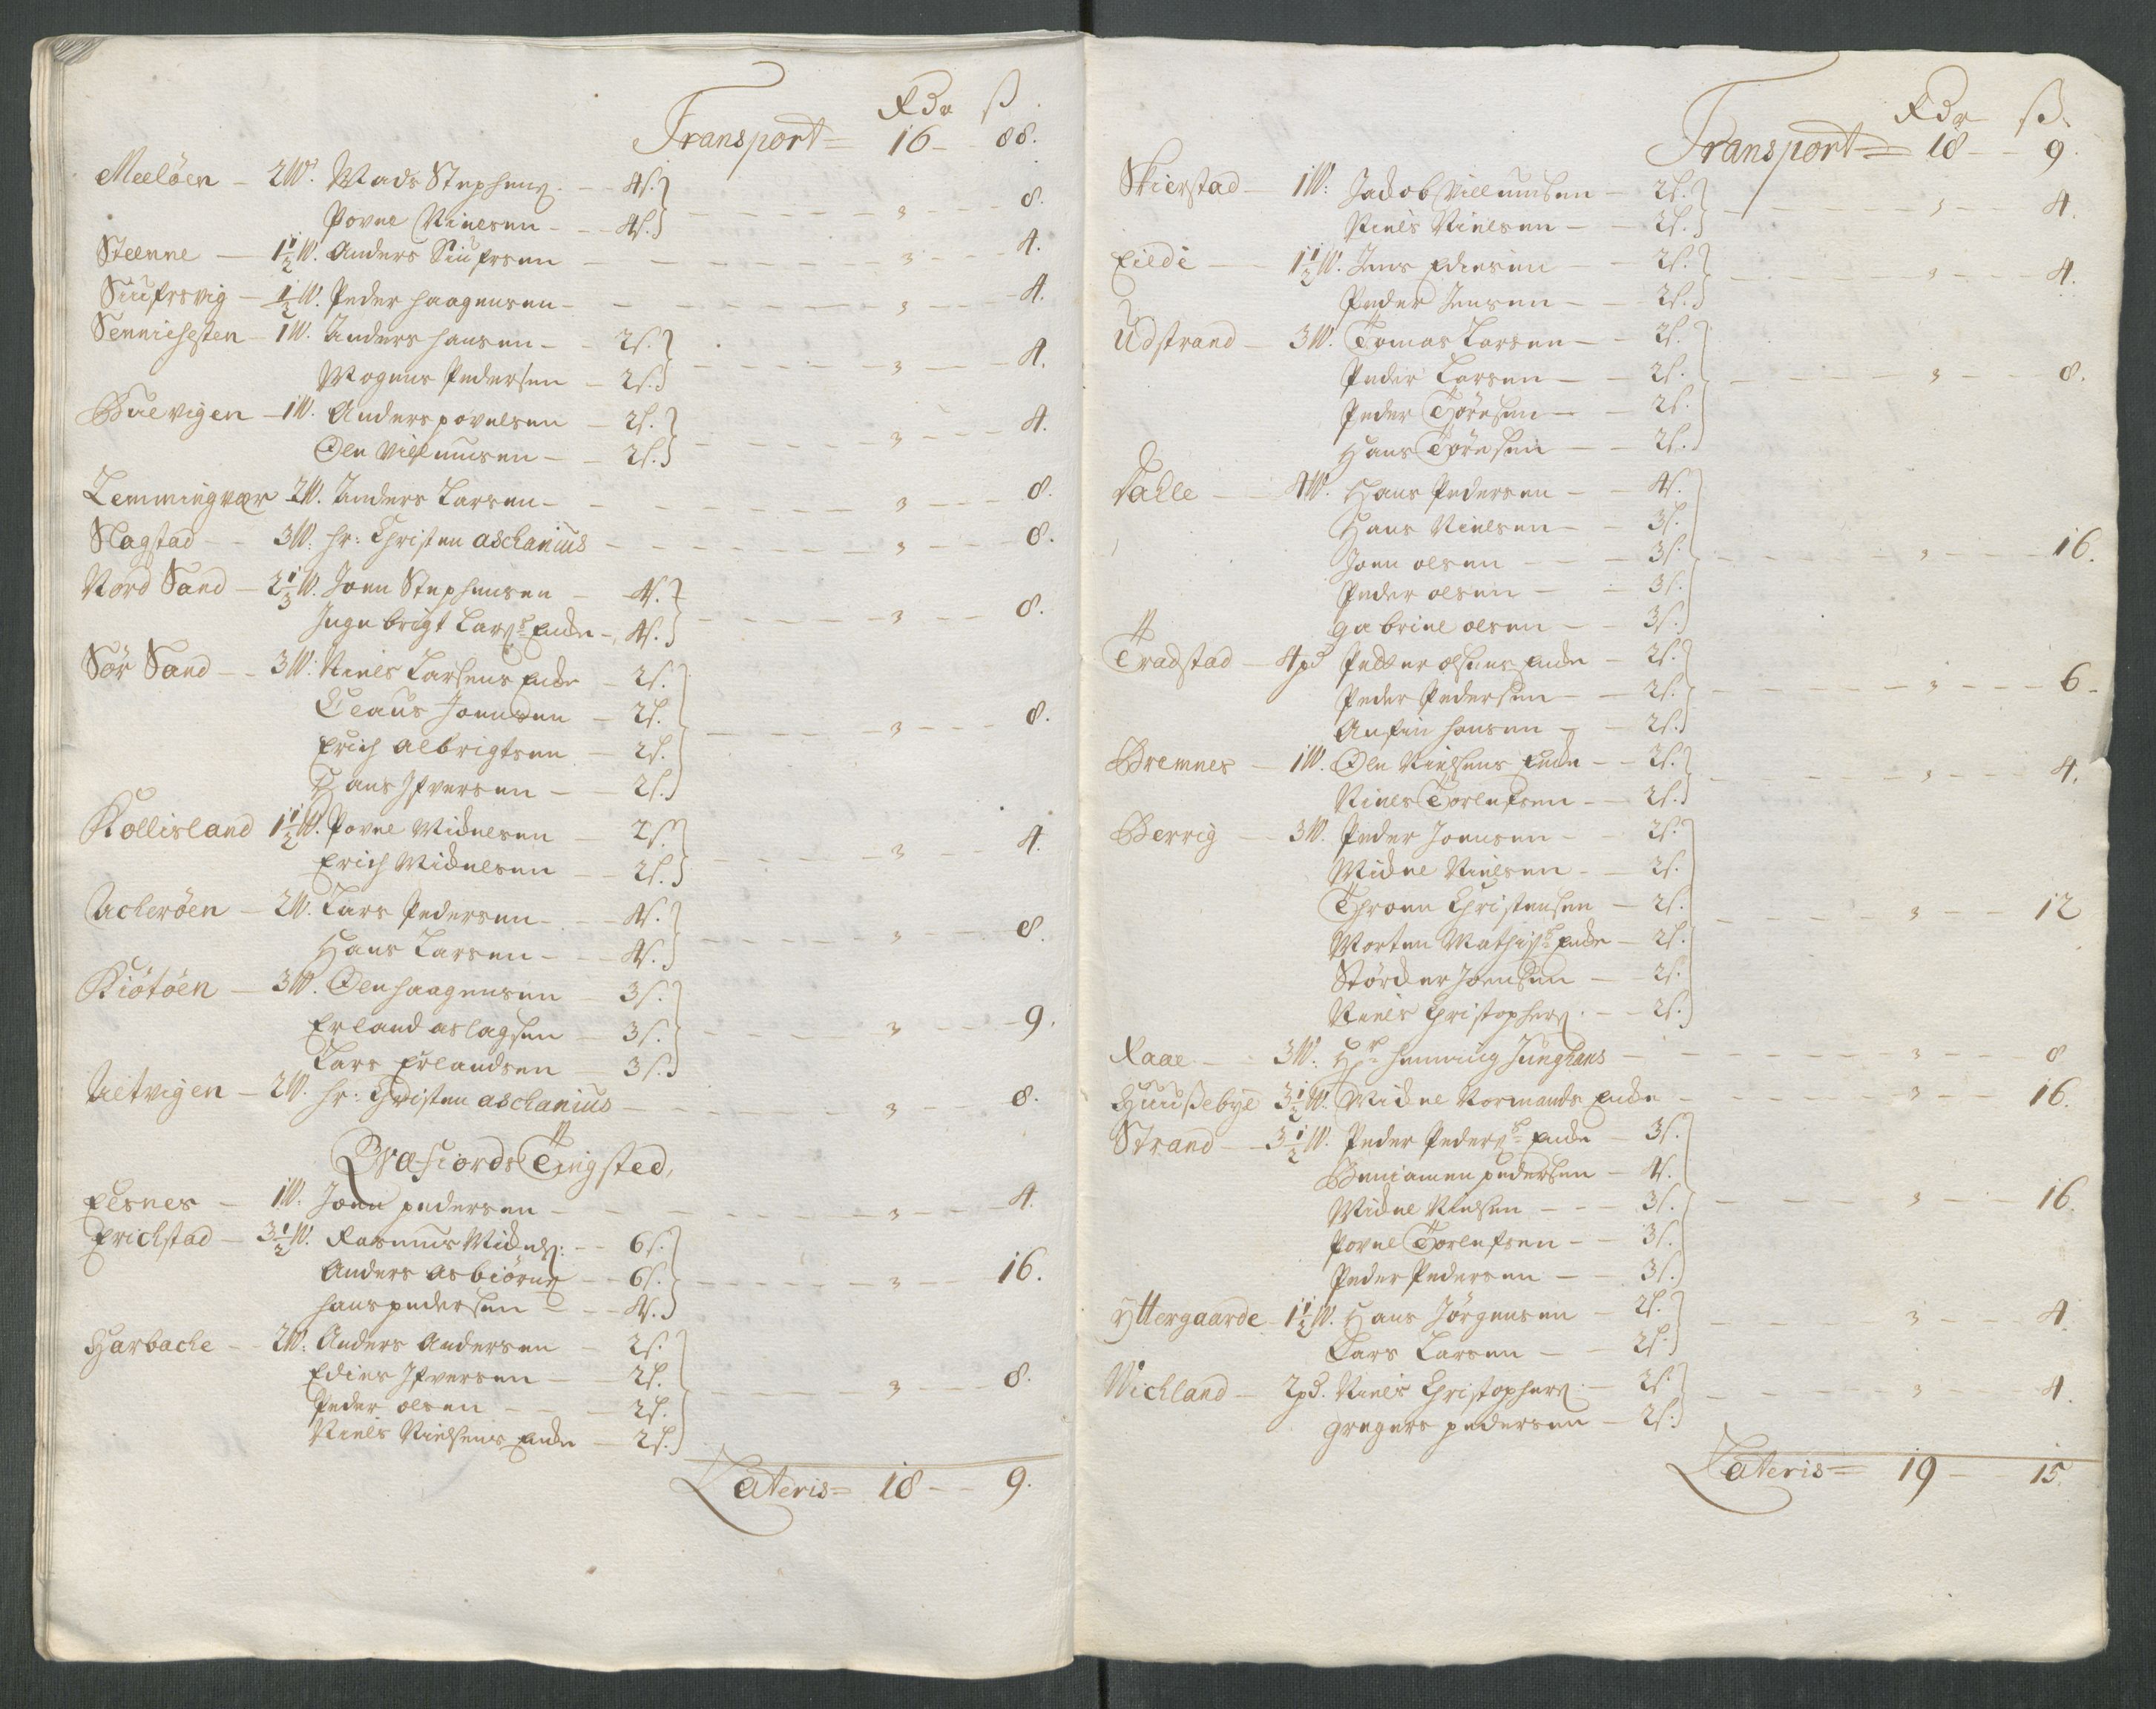 Rdr ß
Transport = 16 - 88.
Meelöen - 2W. Mads Stephens. - 4ß.
Povel Nielsen - 4ß. - 3 - 8.
Steenne - 1½W. Anders Siufrsen - 3 - 4.
Siufrsvig - ½W. Peder haagensen - 3 - 4.
Senniehesten - 1W. Anders hansen - 2ß.
Mogens Pedersen - 2ß. - 3 - 4.
Buevigen - 1W. Anders povelsen - 2ß.
Ole Villumsen - 2ß. - 3 - 4.
Lemmingvær 2W. Anders Larsen - 3 - 8.
Slagstad - 3W. hr: Christen aschanius - 3 - 8.
Nord Sand - 2⅓W. Joen Stephensen - 4ß.
Ingebrigt Lars: Encke - 4ß. - 3 - 8.
Sør Sand - 3W. Niels Larsens Encke - 2ß.
Claus Joensen - 2ß.
Erich albrigtsen - 2ß.
Hans Ifversen - 2ß. - 3 - 8.
Kollisland 1½W. Povel Michelsen - 2ß.
Erich Michelsen - 2ß. - 3 - 4.
Ackerøen - 2W. Lars Pedersen - 4ß.
Hans Larsen - 4ß. - 3 - 8.
Kiötöen - 3W. Ole haagensen - 3ß.
Erland aslagsen - 3ß.
Lars Erlandsen - 3ß. - 3 - 9.
Aletvigen - 2W. hr: Christen aschanius - 3 - 8.
Qvæfiords Tingsted,
Elsnes - 1W. Joen pedersen - 3 - 4.
Erichstad - 3½W. Rasmus Michels: - 6ß.
Anders asbiörns - 6ß.
hans pedersen - 4ß. - 3 - 16.
Harbache - 2W. Anders Andersen - 2ß.
Edies Ifversen - 2ß.
Peder olsen - 2ß.
Niels Nielsens Encke - 2ß. - 3 - 8.
Lateris = 18 - 9.
Rdr ß.
Transport = 18 - 9.
Skierstad - 1W: Jackob Villumsen - 2ß.
Niels Nielsen - 2ß. - 3 - 4.
Eilde - 1½W. Jens Ediesen - 2ß.
Peder Jensen - 2ß. - 3 - 4.
Udstrand - 3W. Tomas Larsen - 2ß.
Peder Larsen - 2ß.
Peder Törresen - 2ß.
Hans Törresen - 2ß. - 3 - 8.
Valle - 4W. Hans Pedersen - 4ß.
Hans Nielsen - 3ß.
Joen olsen - 3ß.
Peder olsen - 3ß.
gabriel olsen - 3ß. - 3 - 16.
Tradstad - 4pd Petter olsens Encke - 2ß.
Peder Pedersen - 2ß.
Anfin hansen - 2ß. - 3 - 6
Bremnes - 1W. Ole Nielsens Encke - 2ß.
Niels Tolleufsen - 2ß. - 3 - 4.
Berrig - 3W. Peder Joensen - 2ß.
Michel Nielsen - 2ß.
Throen Christensen - 2ß.
Morten Mathis: Encke - 2ß.
Störcker Joensen - 2ß.
Niels Christophers. - 2ß. - 3 - 12
Raae - 3W. Hr henning Junghans - 3 - 8
Huusebye 3½W. Michel Normands Encke - 3 - 16.
Strand - 3½W. Peder Peders: Encke - 3ß.
Beniamen pedersen - 4ß.
Michel Nielsen - 3ß.
Povel Tolleufsen - 3ß.
Peder Pedersen - 3ß. - 3 - 16.
Yttergaarde 1½W. Hans Jörgensen - 2ß.
Lars Larsen - 2ß. - 3 - 4.
Wichland - 2pd. Niels Christophers. - 2ß.
gregers pedersen - 2ß. - 3 - 4.
Lateris = 19 - 15.